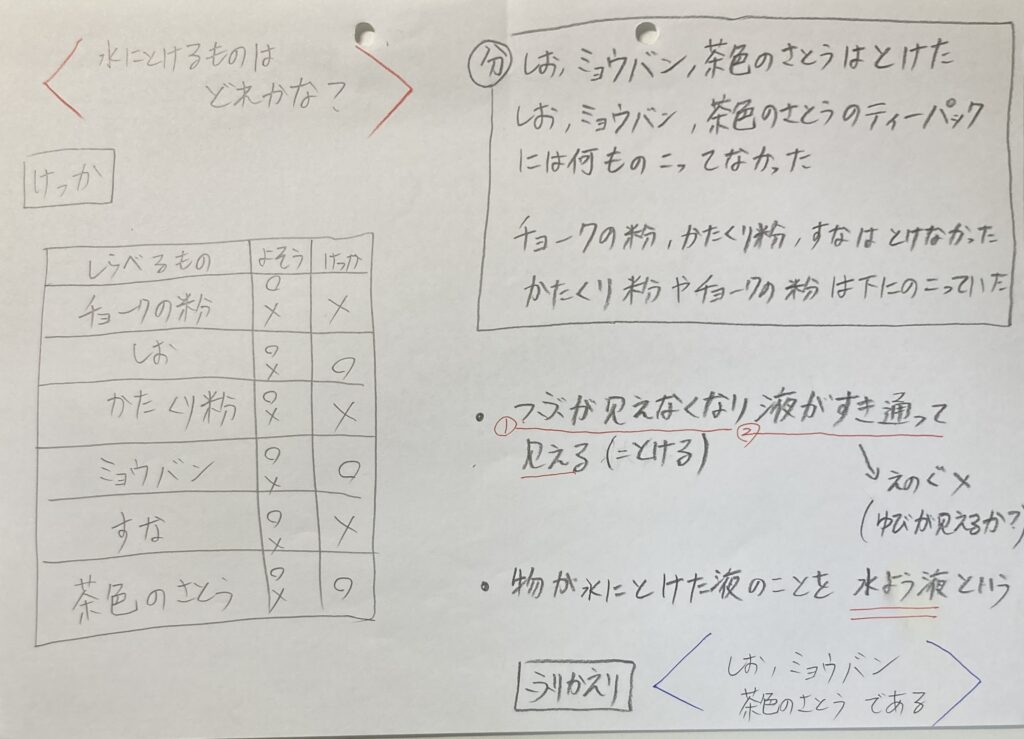 水にとけるものは
どれかな?
けっか
しらべるもの よそう けっか
チョークの粉 ○ × ×
しお ○ × ○
かたくり粉 ○ × ×
ミョウバン ○ × ○
すな ○ × ×
茶色のさとう ○ × ○
分 しお,ミョウバン,茶色のさとうはとけた
しお,ミョウバン,茶色のさとうのティーパック
には何ものこってなかった
チョークの粉,かたくり粉,すなはとけなかった
かたくり粉やチョークの粉は下にのこっていた
・①つぶが見えなくなり②液がすき通って
見える(=とける)
えのぐ×
(ゆびが見えるか?)
・物が水にとけた液のことを水よう液という
ふりかえり
しお,ミョウバン
茶色のさとうである